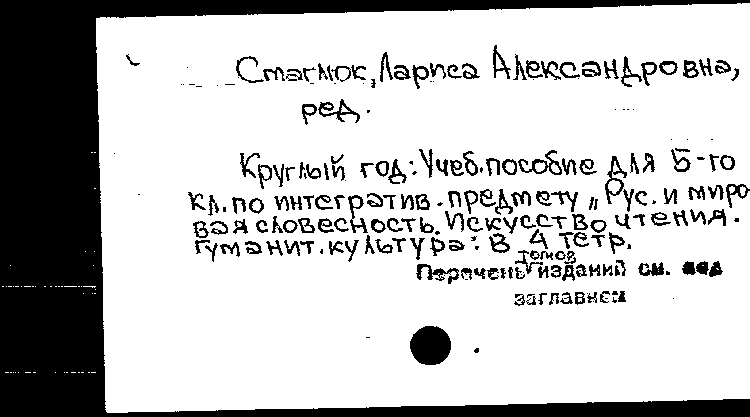 Стагмок, Лариса Александровна,
ред.
Круглый год: Учеб. пособие для 5-го
кл. по интегратив. предмету „Рус. и миро-
вая словесность. Искусство чтения.
Гуманит. культура: В 4 тетр.
томов
Перечень изданий см. под
заглавием